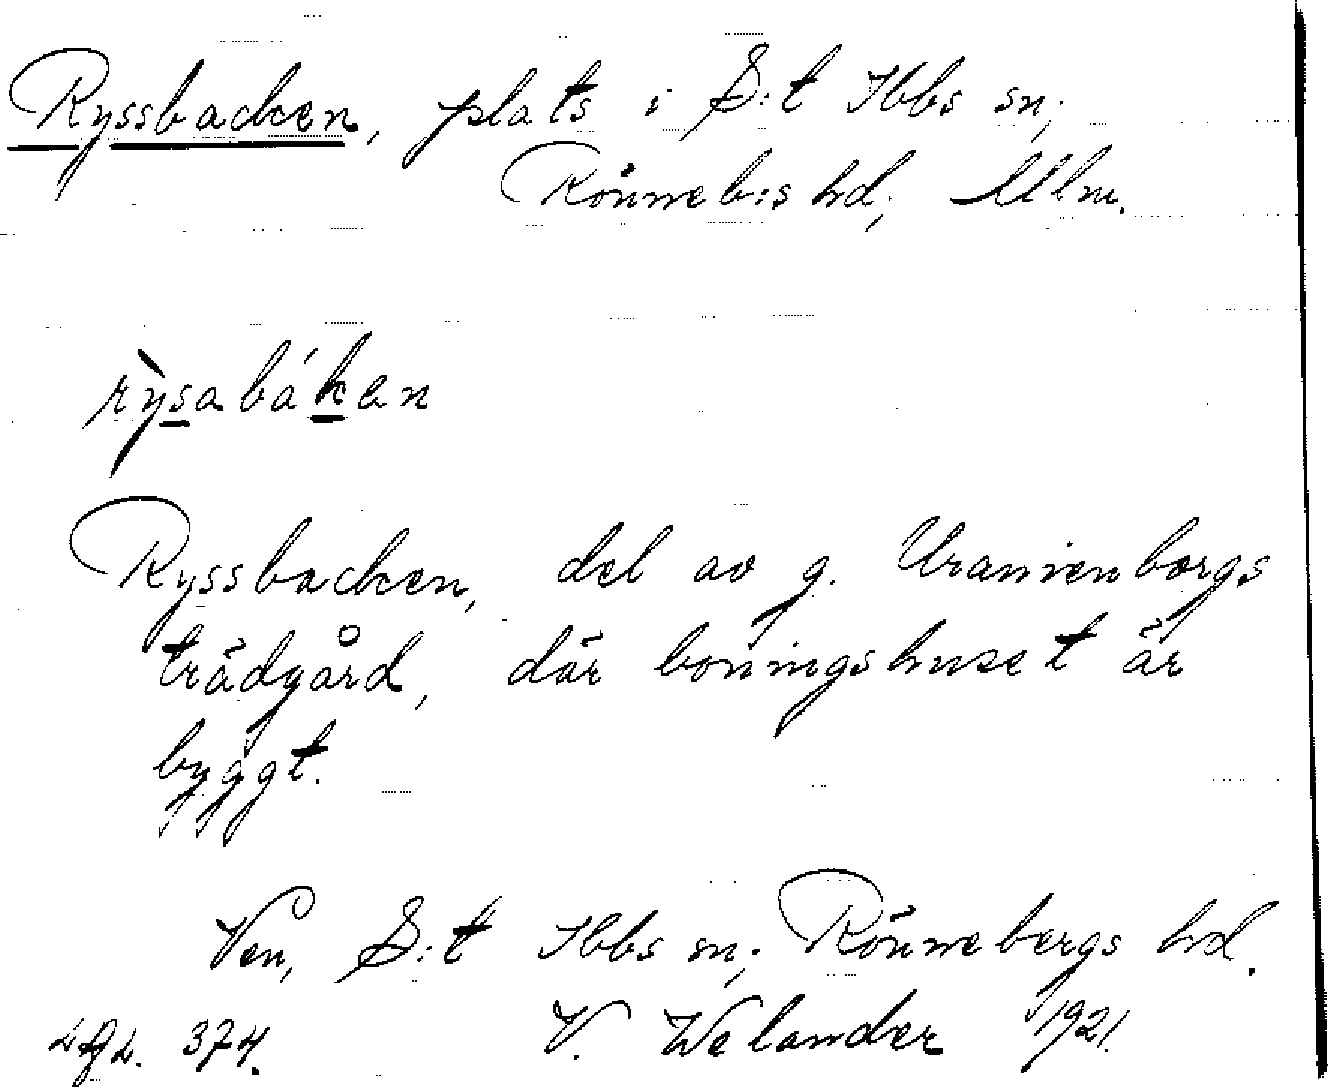 Ryssbacken, plats i S:t Ibbs sn;
Rönneb:s hd; Mlm.
rỳsabákan
Ryssbacken, del av g. Uranienborgs
trädgård, där boningshuset är
byggt.
Ven, S:t Ibbs sn; Rönnebergs hd.
374. V. Welander 1921.